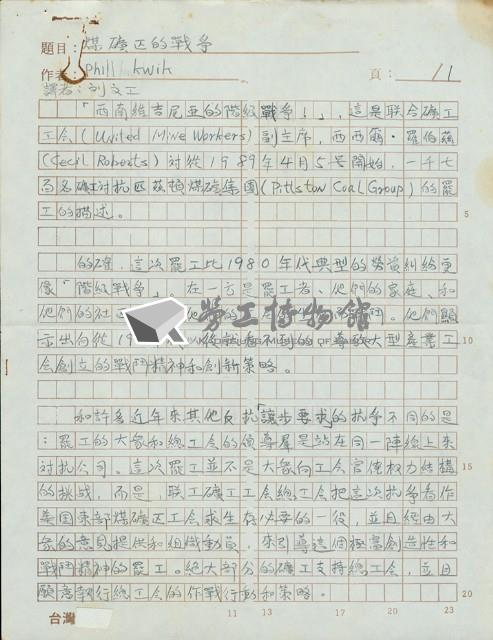 題目：煤礦区的戰爭
作者：Phill kwik
頁：/1
譯者：刘文工
「西南維吉尼亚的階級戰爭！」，這是联合礦工
工会(United Mine Workers)副主席，西西爾·羅伯茲
(Cecil Roberts)対從1989年4月5号開始，一千七
百名礦工対抗匹茲頓煤礦集團(Pittston Coal Group)的罷
工的描述。
5
的確，這次罷工比1980年代典型的勞資糾紛更
像「階級戰爭」。在一方是罷工者、他們的家庭、和
他們的社
他們顯
示出自從19
後就看不到的，導致大型産業工
10
会創立的戰鬥精神和創新策略。
和許多近年來其他反抗「讓步要求」的抗爭不同的是
：罷工的大衆和總工会的領導層是站在同一陣線上來
対抗公司。這次罷工並不是大衆向工会官僚权力結構
15
的挑战，而是，联工礦工工会總工会把這次抗爭看作
美国東部煤礦区工会求生存必要的一役，並且経由大
衆的意見提供和組織動員，來引導這個極富創造性和
戰鬥精神的罷工。絕大部分的礦工支持總工会，並且
願意執行總工会的作戰行動和策略。
20
台灣
11 13 17 20 23
勞工博物館